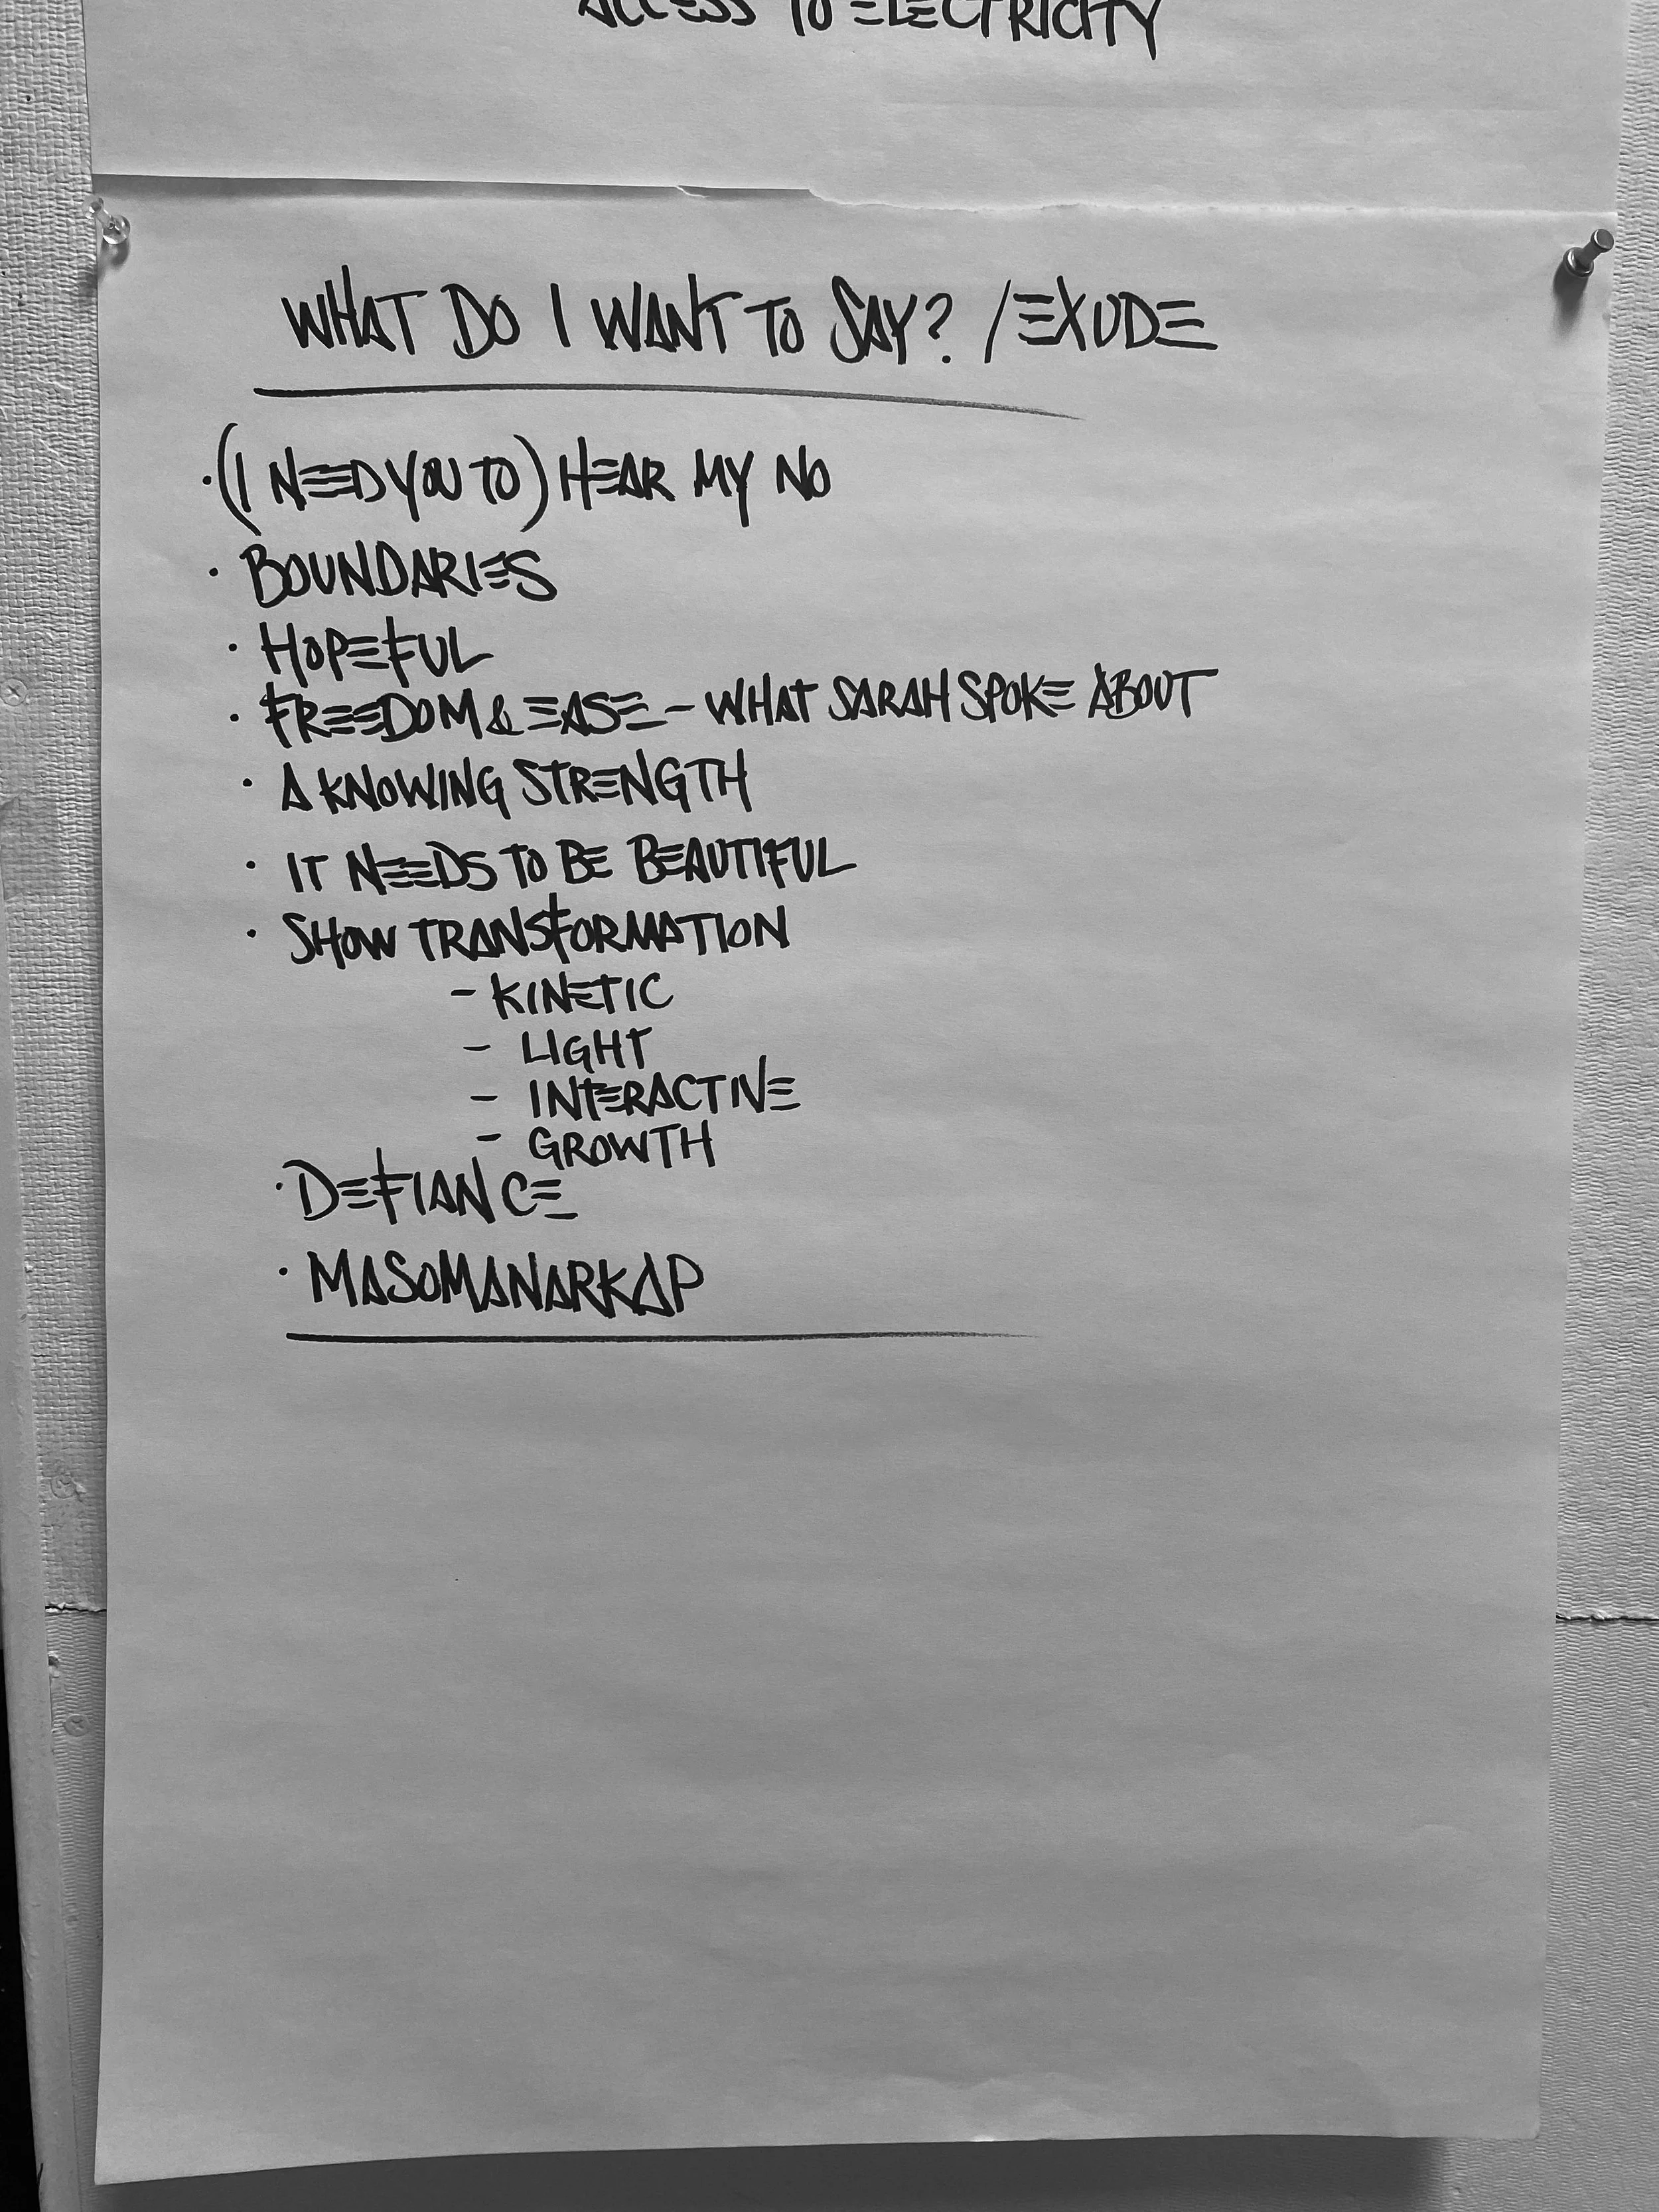 ACCESS TO ELECTRICITY
WHAT DO I WANT TO SAY? /EXUDE
·(I NEED YOU TO) HEAR MY NO
· BOUNDARIES
· HOPEFUL
· FREEDOM & EASE - WHAT SARAH SPOKE ABOUT
· A KNOWING STRENGTH
· IT NEEDS TO BE BEAUTIFUL
· SHOW TRANSFORMATION
- KINETIC
- LIGHT
- INTERACTIVE
- GROWTH
· DEFIANCE
· MASOMANARKAP